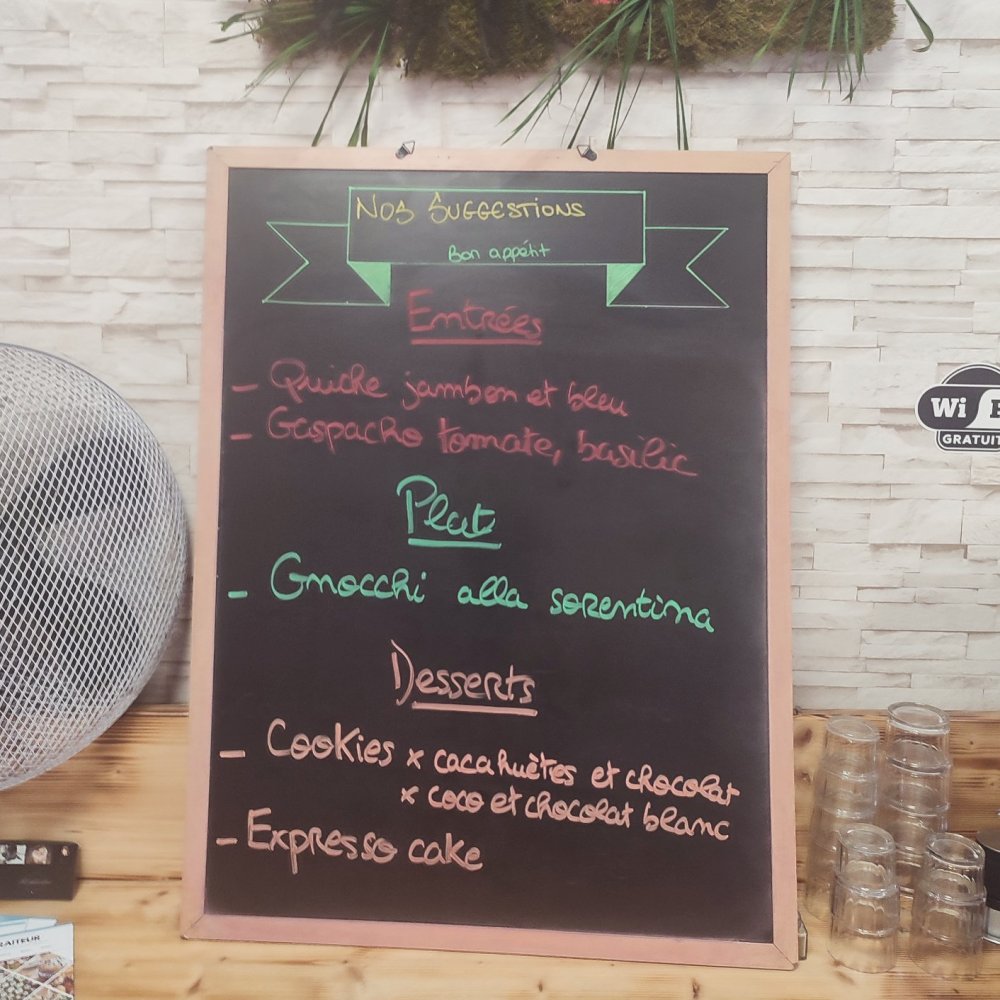 Nos Suggestions
Bon appétit
Entrées
- Quiche jambon et bleu
- Gaspacho tomate, basilic
Plat
- Gnocchi alla sorentina
Desserts
- Cookies x cacahuètes et chocolat
x coco et chocolat blanc
- Expresso cake
Wi F
GRATUIT
RAITEUR